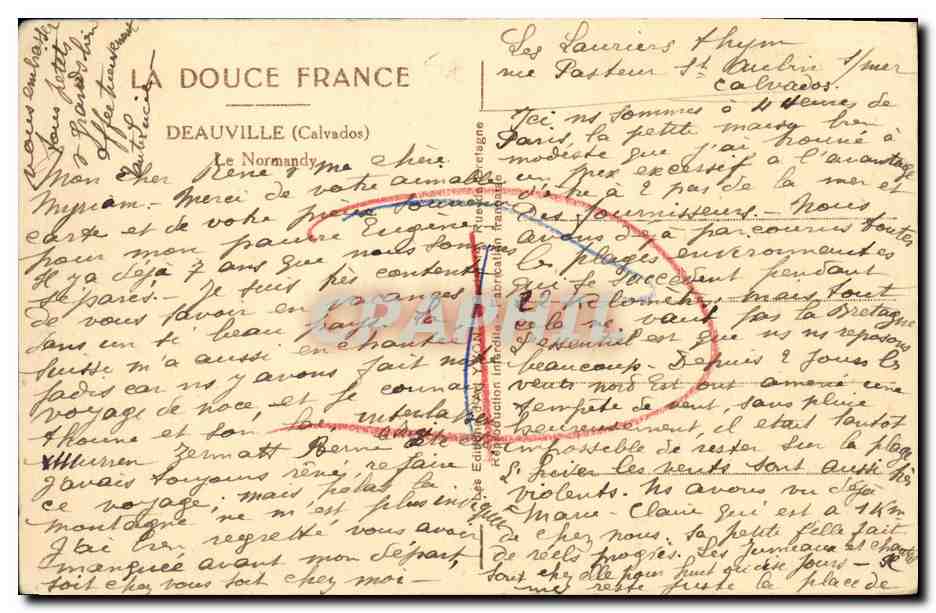 Les Lauriers thym
rue Pasteur St Aubin s/mer
Calvados.
LA DOUCE FRANCE
DEAUVILLE (Calvados)
Le Normandy
Mon cher René & ma chère
Myriam. Merci de votre aimable
carte et de votre souvenir
pour mon pauvre Eugène.
Il y a déjà 7 ans que nous sommes
séparés. - Je suis très contente
de vous savoir en vacances
dans un si beau pays. La
Suisse m'a aussi enchantée
jadis car ns y avons fait notre
voyage de noce, et je connais
Thoune et son Interlaken
Murren Zermatt Berne etc
J'avais toujours rêvé refaire
ce voyage, mais hélas la
montagne ne m'est plus indiquée
J'ai bien regretté vous avoir
manquée avant mon départ,
soit chez vous soit chez moi -
Ici ns sommes à 4 heures de
Paris, la petite maison bien
modeste que j'ai trouvé à
un prix excessif a l'avantage
d'être à 2 pas de la mer et
des fournisseurs. - Nous
avons déjà parcouru toutes
les plages environnantes
qui se succèdent pendant
mais tout
cela ne vaut pas la Bretagne
L'essentiel est que ns ns reposons
beaucoup. Depuis 2 jours les
vents nord Est ont amené une
tempête de vent, sans pluie
heureusement, il était tantôt
impossible de rester sur la plage
L'hiver les vents sont aussi très
violents. Ns avons vu déjà
Marie-Claire qui est à 1 km
de chez nous, sa petite fille fait
de réels progrès. Les jumeaux et
sont chez elle pour huit quinze jours - Il
me reste juste la place de
vous embrasser
tous petits
& grands bien
affectueusement
Lucie
Les Editions d'Art YVON
Reproduction interdite Fabrication française
CPAPHIL